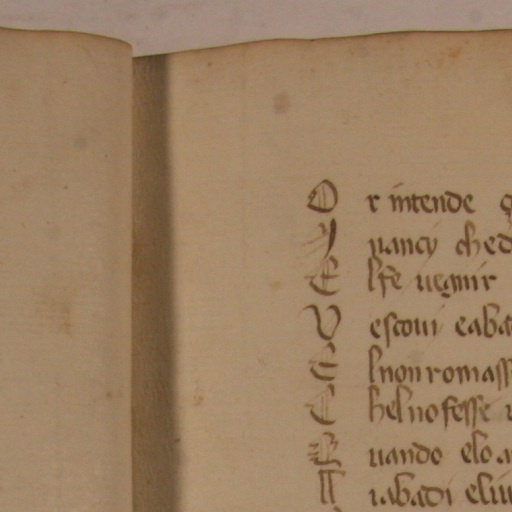 Or intende
Juancy ched
Elfe uegnir
Vescoui eaba
Elnonromass
Chelnofesse
Quando elo a
Uabadi eliu